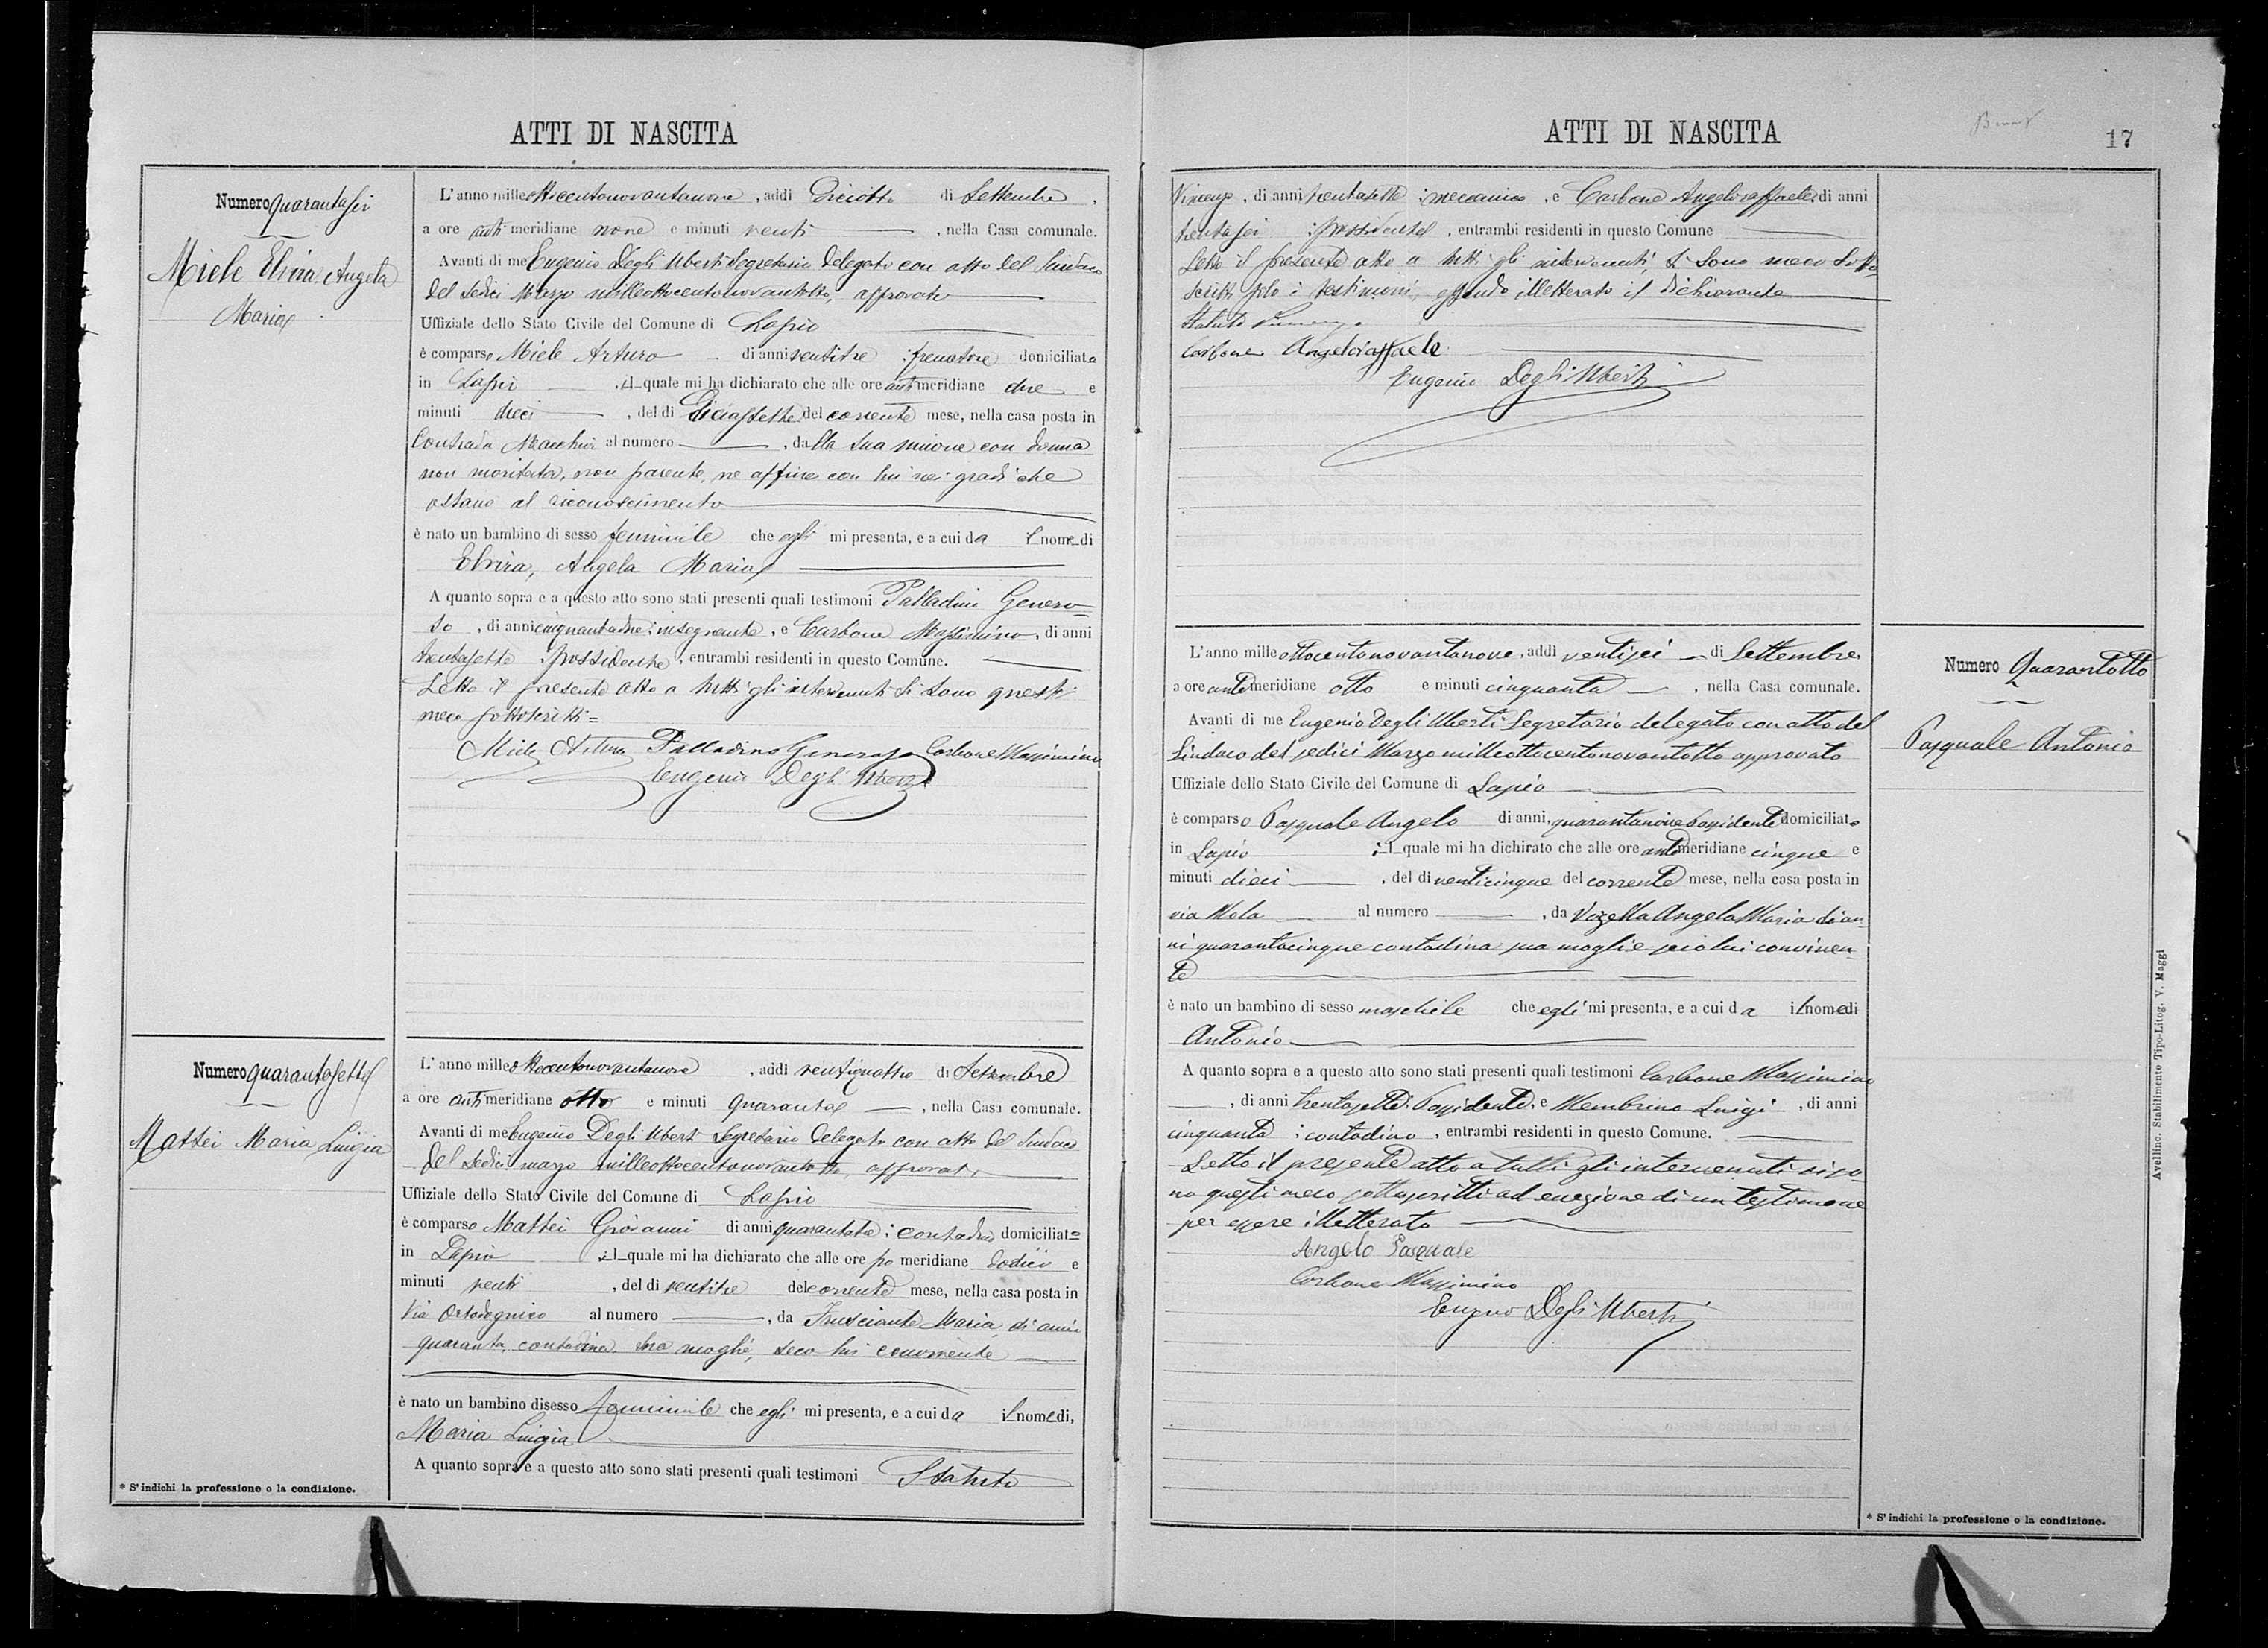 ATTI DI NASCITA
Numero quarantasei
Miele Elvira Angela
Maria
L'anno mille ottocentonovantanove, addi Diciotto di Settembre,
a ore anti meridiane nove e minuti venti, nella Casa comunale.
Avanti di me Eugenio Degli Uberti Segretario delegato con atto del Sindaco
del sedici Marzo milleottocentonovantotto, approvato
Uffiziale dello Stato Civile del Comune di Lapio
è comparso Miele Arturo di anni ventitre : frenatore domiciliato
in Lapio, il quale mi ha dichiarato che alle ore anti meridiane due e
minuti dieci, del di Diciassette del corrente mese, nella casa posta in
Contrada Macchia al numero, dalla sua unione con donna
non maritata, non parente, ne affine con lui nei gradi che
ostano al riconoscimento
è nato un bambino di sesso femminile che egli mi presenta, e a cui da il nome di
Elvira, Angela Maria
A quanto sopra e a questo atto sono stati presenti quali testimoni Palladino Genero=
so, di anni : insegnante, e Carbone Massimino, di anni
trentasette : possidente, entrambi residenti in questo Comune.
Letto il presente atto a tutti gli intervenuti si sono questi
meco sottoscritti =
Miele Arturo Palladino Generoso Carbone Massimino
Eugenio Degli Uberti
Numero quarantasette
Mattei Maria Luigia
L'anno mille ottocentonovantanove, addi ventiquattro di Settembre
a ore anti meridiane otto e minuti quaranta, nella Casa comunale.
Avanti di me Eugenio Degli Uberti Segretario delegato con atto del Sindaco
del sedici marzo milleottocentonovantotto, approvato
Uffiziale dello Stato Civile del Comune di Lapio
è comparso Mattei Giovanni di anni : contadino domiciliato
in Lapio il quale mi ha dichiarato che alle ore po meridiane dodici e
minuti venti, del di ventitre del corrente mese, nella casa posta in
Via al numero, da Frusciante Maria, di anni
quaranta, contadina sua moglie, seco lui convivente
è nato un bambino di sesso femminile che egli mi presenta, e a cui da il nome di,
Maria Luigia
A quanto sopra e a questo atto sono stati presenti quali testimoni Statuto
* S'indichi la professione o la condizione.
ATTI DI NASCITA
17
Vincenzo, di anni trentasette : meccanico, e Carbone Angeloraffaele di anni
trentasei : possidente, entrambi residenti in questo Comune
Letto il presente atto a tutti gli intervenuti, si sono meco sotto
scritti solo i testimoni, essendo illetterato il dichiarante
Statuto Vincenzo
Carbone Angeloraffaele
Eugenio Degli Uberti
L'anno mille ottocentonovantanove, addi ventisei di Settembre
a ore anti meridiane otto e minuti cinquanta, nella Casa comunale.
Avanti di me Eugenio Degli Uberti Segretario delegato con atto del
Sindaco del sedici Marzo milleottocentonovantotto approvato
Uffiziale dello Stato Civile del Comune di Lapio
è comparso Pasquale Angelo di anni, quarantanove Possidente domiciliato
in Lapio il quale mi ha dichirato che alle ore anti meridiane cinque e
minuti dieci, del di venticinque del corrente mese, nella casa posta in
via Mola al numero, da Vozella Angela Maria di an=
ni quarantacinque contadina sua moglie seco lui conviven=
te
è nato un bambino di sesso maschile che egli mi presenta, e a cui da il nome di
Antonio
A quanto sopra e a questo atto sono stati presenti quali testimoni Carbone Massimino
, di anni trentasette : Possidente, e Membrino Luigi, di anni
cinquanta : contadino, entrambi residenti in questo Comune.
Letto il presente atto a tutti gli intervenuti si so=
no questi meco sottoscritti ad eccezione di un testimone
per essere illetterato
Angelo Pasquale
Carbone Massimino
Eugenio Degli Uberti
Numero Quarantotto
Pasquale Antonio
* S'indichi la professione o la condizione.
Avellino. Stabilimento Tipo-Litog. V. Maggi